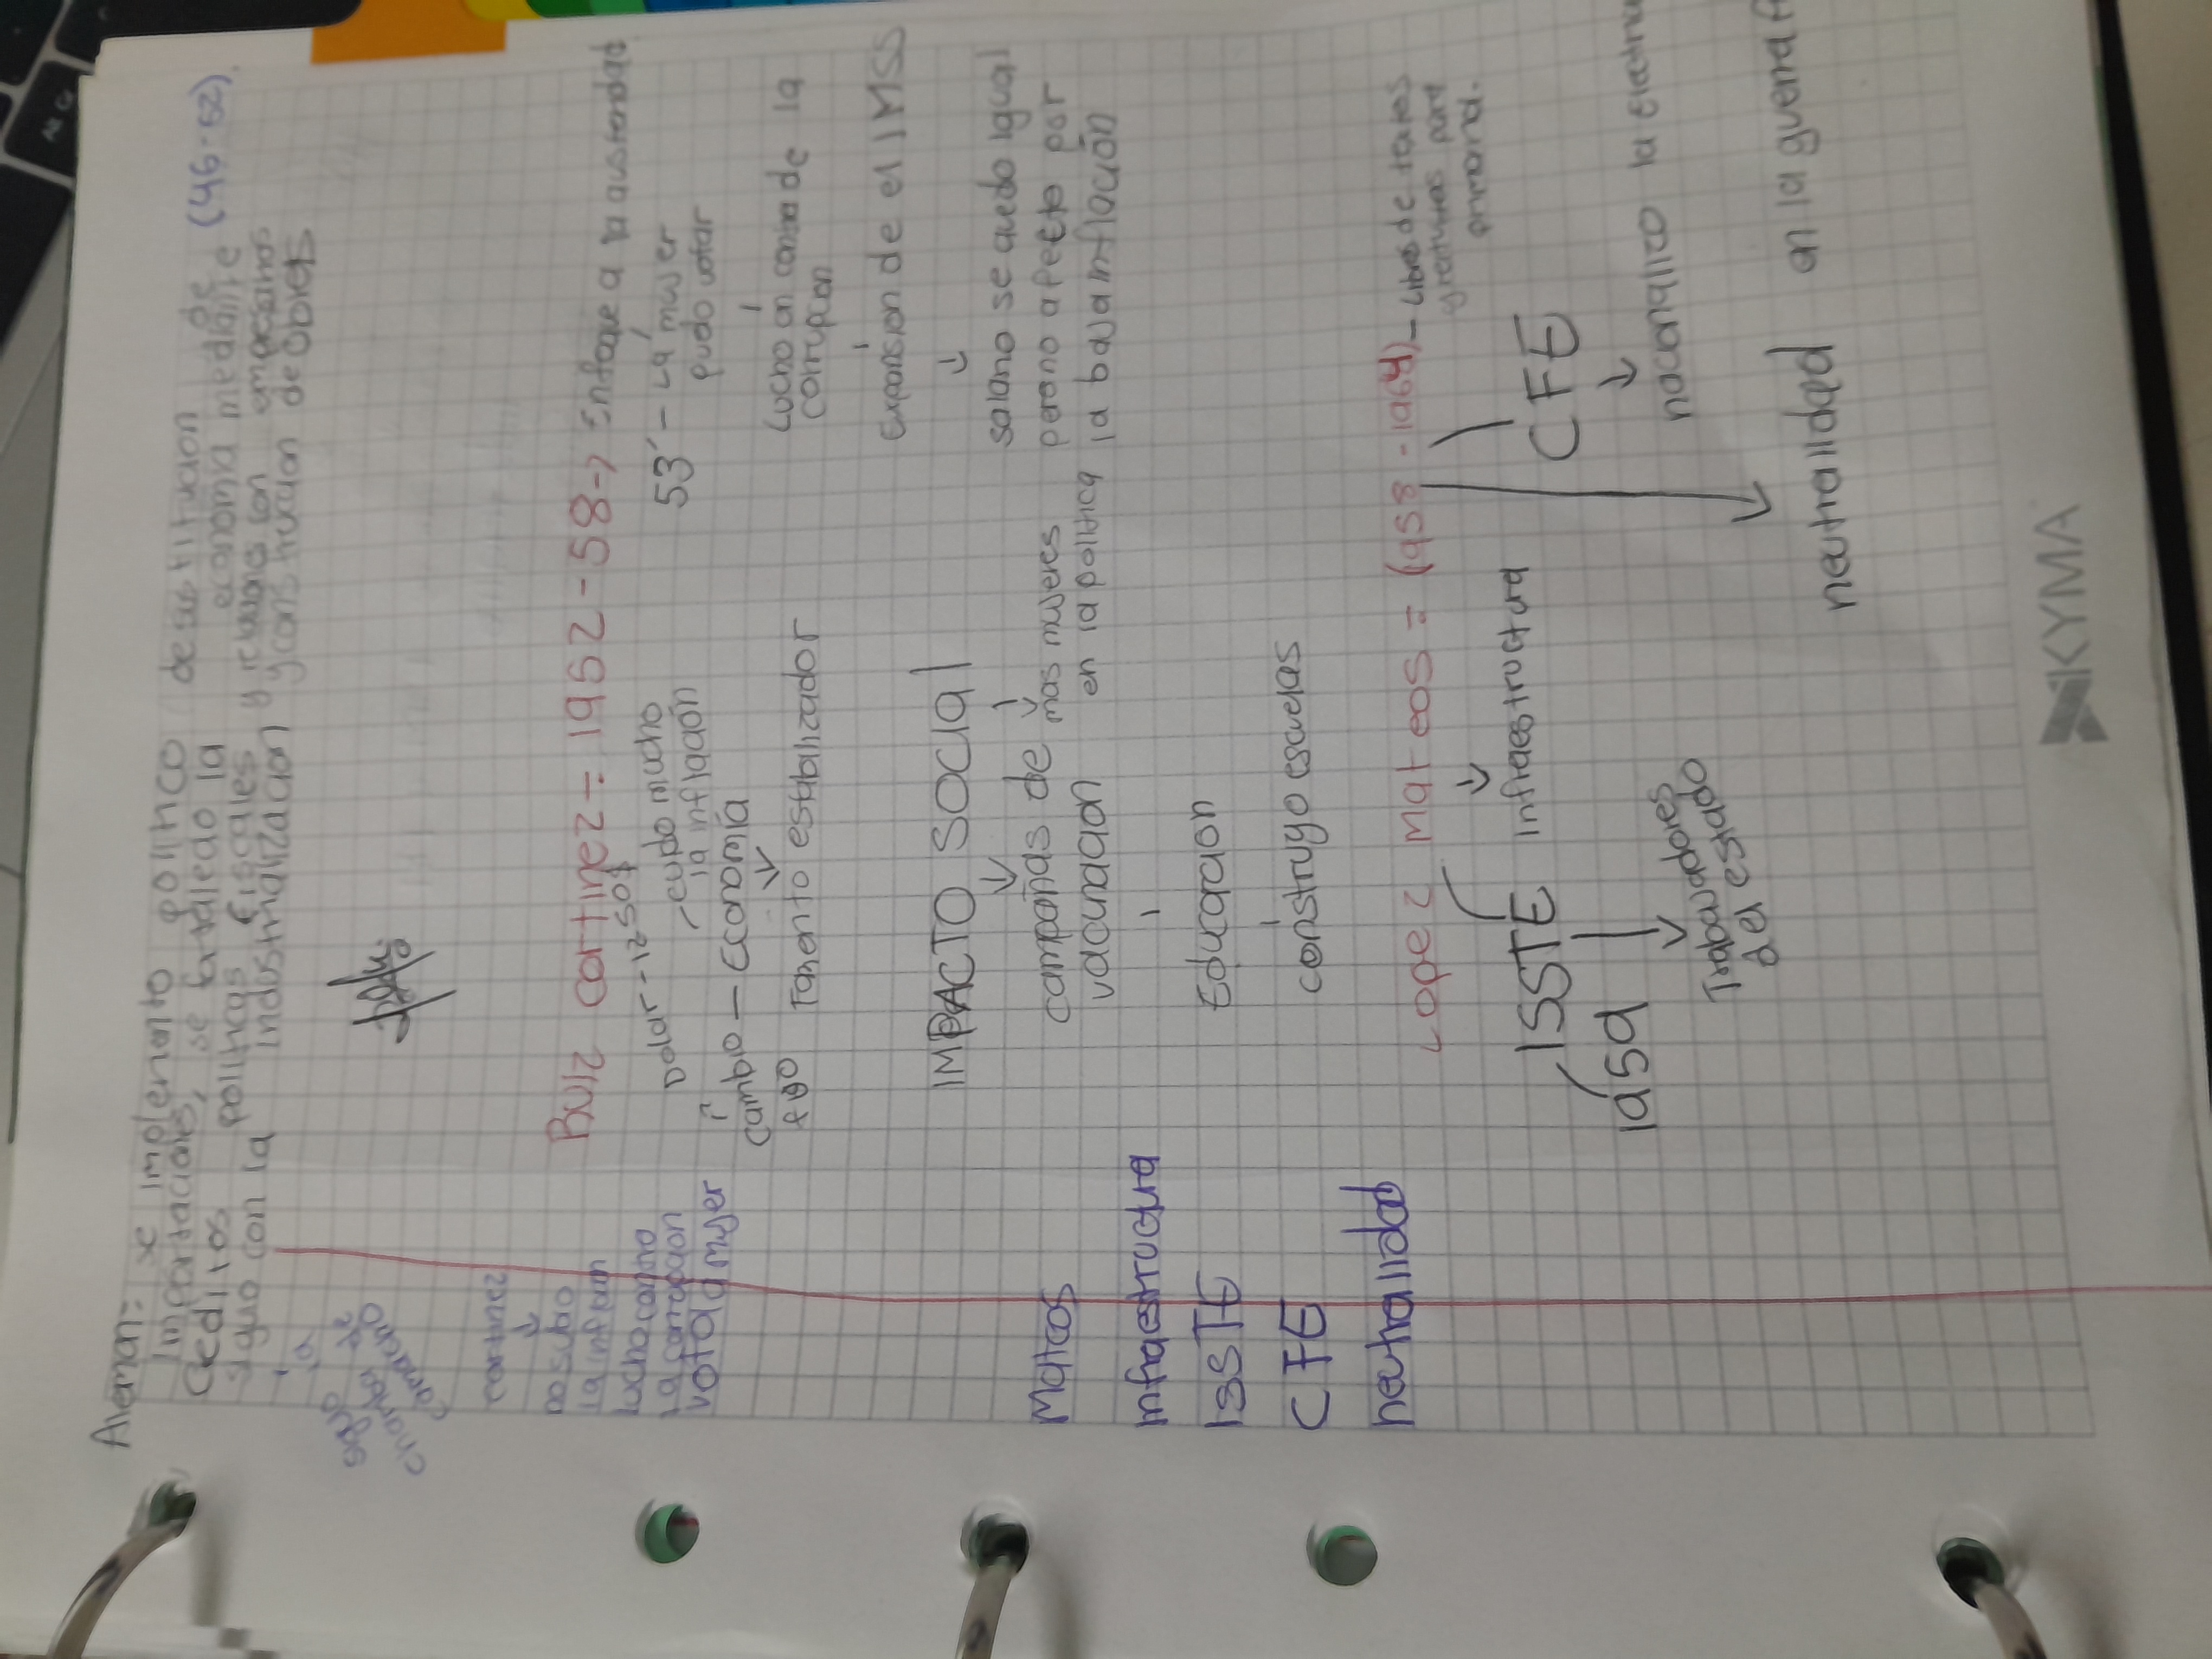 Aleman: se implemento politico de sustitucion de (46-52).
Importaciones, se fortaledo la economia mediante
Creditos politicas fiscales y relacios con empresarios
siguo con la industrializacion y construccion de obras
la
sigio
chamba de
camacho
Ruiz cortinez = 1952-58 -> Enfoque a la austeridad
Dolar - 12.50
- cuido mucho
la inflacion
53' - La mujer
pudo votar
Cambio - Economia
fijo
Fomento estabilizador
Lucho an contra de la
corrupcion
Expansion de el IMSS
IMPACTO SOCIAL
campañas de
vacunacion
mas mujeres
en la politica
salario se quedo igual
pero no afecto por
la baja inflación
Educacion
construyo escuelas
cortinez
no subio
la inflacion
lucho contra
la corrupcion
voto la mujer
Lopez Mateos = (1958-1964) - Libros de textos
gratuitos para
primaria.
ISSTE
infraestructura
CFE
1959
Trabajadores
del estado
nacionalizo la
neutralidad an la guerra
Mateos
infraestructura
ISSTE
CFE
neutralidad
KYMA
Alt G